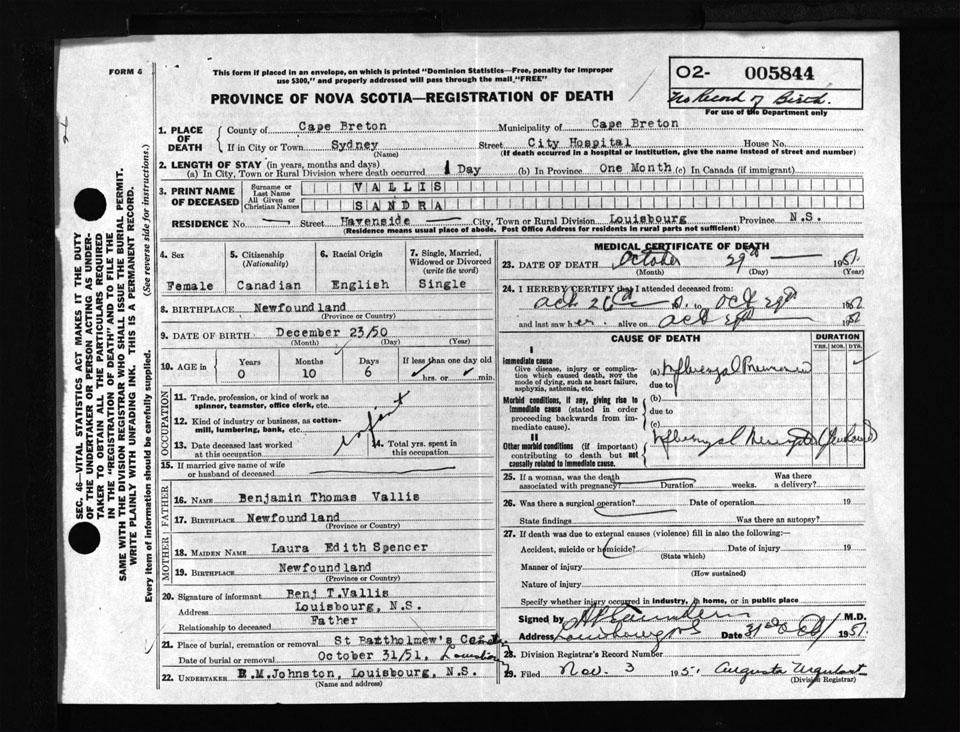 FORM 6
This form if placed in an envelope, on which is printed "Dominion Statistics—Free, penalty for improper
use $300," and properly addressed will pass through the mail "FREE"
O2- 005844
No Record of Birth.
For use of the Department only
PROVINCE OF NOVA SCOTIA—REGISTRATION OF DEATH
1. PLACE OF DEATH
County of Cape Breton Municipality of Cape Breton
If in City or Town Sydney Street City Hospital House No.
(Name) (If death occurred in a hospital or institution, give the name instead of street and number)
2. LENGTH OF STAY (in years, months and days)
(a) In City, Town or Rural Division where death occurred 1 Day (b) In Province One Month (c) In Canada (if immigrant)
3. PRINT NAME OF DECEASED
Surname or Last Name VALLIS
All Given or Christian Names SANDRA
RESIDENCE No. Street Havenside City, Town or Rural Division Louisbourg Province N.S.
(Residence means usual place of abode. Post Office Address for residents in rural parts not sufficient)
4. Sex
Female
5. Citizenship
(Nationality)
Canadian
6. Racial Origin
English
7. Single, Married,
Widowed or Divorced
(write the word)
Single
8. BIRTHPLACE Newfoundland
(Province or Country)
9. DATE OF BIRTH December 23/50
(Month) (Day) (Year)
10. AGE in
Years Months Days If less than one day old
0 10 6 hrs. or min.
OCCUPATION
11. Trade, profession, or kind of work as
spinner, teamster, office clerk, etc.
12. Kind of industry or business, as cotton-
mill, lumbering, bank, etc.
infant
13. Date deceased last worked
at this occupation
14. Total yrs. spent in
this occupation
15. If married give name of wife
or husband of deceased
FATHER
16. NAME Benjamin Thomas Vallis
17. BIRTHPLACE Newfoundland
(Province or Country)
MOTHER
18. MAIDEN NAME Laura Edith Spencer
19. BIRTHPLACE Newfoundland
(Province or Country)
20. Signature of informant Benj T.Vallis
Address Louisbourg, N.S.
Relationship to deceased Father
21. Place of burial, cremation or removal St Bartholmew's
Date of burial or removal October 31/51,
22. UNDERTAKER E.M.Johnston, Louisbourg, N.S.
(Name and address)
MEDICAL CERTIFICATE OF DEATH
23. DATE OF DEATH October 29th 1951
(Month) (Day) (Year)
24. I HEREBY CERTIFY that I attended deceased from:
Oct 26th to Oct 29th 1951
and last saw her alive on Oct 29th 1951
CAUSE OF DEATH
DURATION
YRS. MOS. DYS.
I
Immediate cause
Give disease, injury or complica-
tion which caused death, NOT the
mode of dying, such as heart failure,
asphyxia, asthenia, etc.
(a) Influenzal Pneumonia
due to
Morbid conditions, if any, giving rise to
immediate cause (stated in order
proceeding backwards from im-
mediate cause).
(b)
due to
(c)
II
Other morbid conditions (if important)
contributing to death but not
causally related to immediate cause.
Influenzal Meningitis
25. If a woman, was the death
associated with pregnancy? Duration weeks. Was there
a delivery?
26. Was there a surgical operation? Date of operation 19
State findings Was there an autopsy?
27. If death was due to external causes (violence) fill in also the following:—
Accident, suicide or homicide? Date of injury 19
(State which)
Manner of injury
(How sustained)
Nature of injury
Specify whether injury occurred in industry, in home, or in public place
Signed by M.D.
Address Louisbourg NS Date 31st Oct 1951
28. Division Registrar's Record Number
29. Filed Nov. 3 195 Augusta Urquhart
(Division Registrar)
SEC. 46—VITAL STATISTICS ACT MAKES IT THE DUTY
OF THE UNDERTAKER OR PERSON ACTING AS UNDER-
TAKER TO OBTAIN ALL THE PARTICULARS REQUIRED
IN THE "REGISTRATION OF DEATH" AND TO FILE THE
SAME WITH THE DIVISION REGISTRAR WHO SHALL ISSUE THE BURIAL PERMIT.
WRITE PLAINLY WITH UNFADING INK. THIS IS A PERMANENT RECORD.
Every item of information should be carefully supplied. (See reverse side for instructions.)